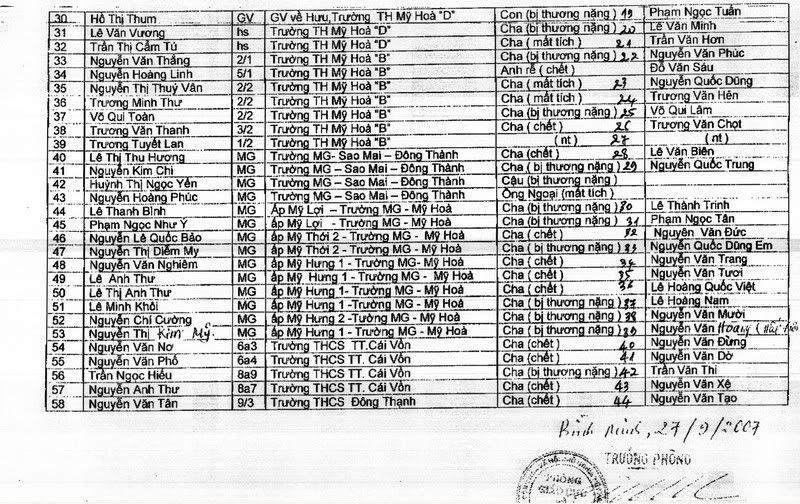 30 Hồ Thị Thum GV GV về Hưu,Trường TH Mỹ Hoà "D" Con (bị thương nặng) 19 Phạm Ngọc Tuấn
31 Lê Văn Vương hs Trường TH Mỹ Hoà "D" Cha (bị thương nặng) 20 Lê Văn Minh
32 Trần Thị Cẩm Tú hs Trường TH Mỹ Hoà "D" Cha ( mất tích ) 21 Trần Văn Hơn
33 Nguyễn Văn Thắng 2/1 Trường TH Mỹ Hoà "B" Cha (bị thương nặng) 22 Nguyễn Văn Phúc
34 Nguyễn Hoàng Linh 5/1 Trường TH Mỹ Hoà "B" Anh rể ( chết) Đỗ Văn Sáu
35 Nguyễn Thị Thuý Vân 2/2 Trường TH Mỹ Hoà "B" Cha ( mất tích ) 23 Nguyễn Quốc Dũng
36 Trương Minh Thư 2/2 Trường TH Mỹ Hoà "B" Cha ( mất tích ) 24 Trương Văn Hên
37 Võ Qui Toàn 2/2 Trường TH Mỹ Hoà "B" Cha (bị thương nặng) 25 Võ Qui Lâm
38 Trương Văn Thanh 3/2 Trường TH Mỹ Hoà "B" Cha ( chết ) 26 Trương Văn Chọt
39 Trương Tuyết Lan 1/2 Trường TH Mỹ Hoà "B" ( nt ) 27 ( nt )
40 Lê Thị Thu Hương MG Trường MG- Sao Mai – Đông Thành Cha (chết) 28 Lê Văn Biên
41 Nguyễn Kim Chi MG Trường MG – Sao Mai – Đông Thành Cha ( bị thương nặng) 29 Nguyễn Quốc Trung
42 Huỳnh Thị Ngọc Yến MG Trường MG – Sao Mai – Đông Thành Cậu (bị thương nặng )
43 Nguyễn Hoàng Phúc MG Trường MG – Sao Mai – Đông Thành Ông Ngoại (mất tích )
44 Lê Thanh Bình MG Ấp Mỹ Lợi – Trường MG - Mỹ Hoà Cha (bị thương nặng ) 30 Lê Thành Trinh
45 Phạm Ngọc Như Ý MG ấp Mỹ Lợi - Trường MG - Mỹ Hoà Cha (bị thương nặng ) 31 Phạm Ngọc Tân
46 Nguyễn Lê Quốc Bảo MG ấp Mỹ Thới 2 - Trường MG - Mỹ Hoà Cha ( chết) 32 Nguyễn Văn Đức
47 Nguyễn Thị Diễm My MG ấp Mỹ Thới 2 - Trường MG - Mỹ Hoà Cha (bị thương nặng ) 33 Nguyễn Quốc Dũng Em
48 Nguyễn Văn Nghiêm MG ấp Mỹ Hưng 1 - Trường MG- Mỹ Hoà Cha ( chết) 34 Nguyễn Văn Trang
49 Lê Anh Thư MG ấp Mỹ Hưng 1 - Trường MG - Mỹ Hoà Cha ( chết) 35 Nguyễn Văn Tươi
50 Lê Thị Anh Thư MG ấp Mỹ Hưng 1- Trường MG - Mỹ Hoà Cha ( chết ) 36 Lê Hoàng Quốc Việt
51 Lê Minh Khôi MG ấp Mỹ Hưng 1- Trường MG - Mỹ Hoà Cha (bị thương nặng ) 37 Lê Hoàng Nam
52 Nguyễn Chí Cường MG ấp Mỹ Hưng 2 -Trường MG - Mỹ Hoà Cha (bị thương nặng ) 38 Nguyễn Văn Mười
53 Nguyễn Thị Kim Mỹ MG ấp Mỹ Hưng 1 - Trường MG - Mỹ Hoà Cha ( bị thương nặng ) 39 Nguyễn Văn Hoàng
54 Nguyễn Văn Nơ 6a3 Trường THCS TT.Cái Vồn Cha (chết ) 40 Nguyễn Văn Đừng
55 Nguyễn Văn Phố 6a4 Trường THCS TT. Cái Vồn Cha ( chết) 41 Nguyễn Văn Dờ
56 Trần Ngọc Hiếu 8a9 Trường THCS TT. Cái Vồn Cha (bị thương nặng ) 42 Trần Văn Thi
57 Nguyễn Anh Thư 8a7 Trường THCS TT. Cái Vồn Cha (chết) 43 Nguyễn Văn Xệ
58 Nguyễn Văn Tân 9/3 Trường THCS Đông Thạnh Cha (chết) 44 Nguyễn Văn Tạo
Bình Minh, 27/9/2007
TRƯỞNG PHÒNG
PHÒNG
GIÁO DỤC